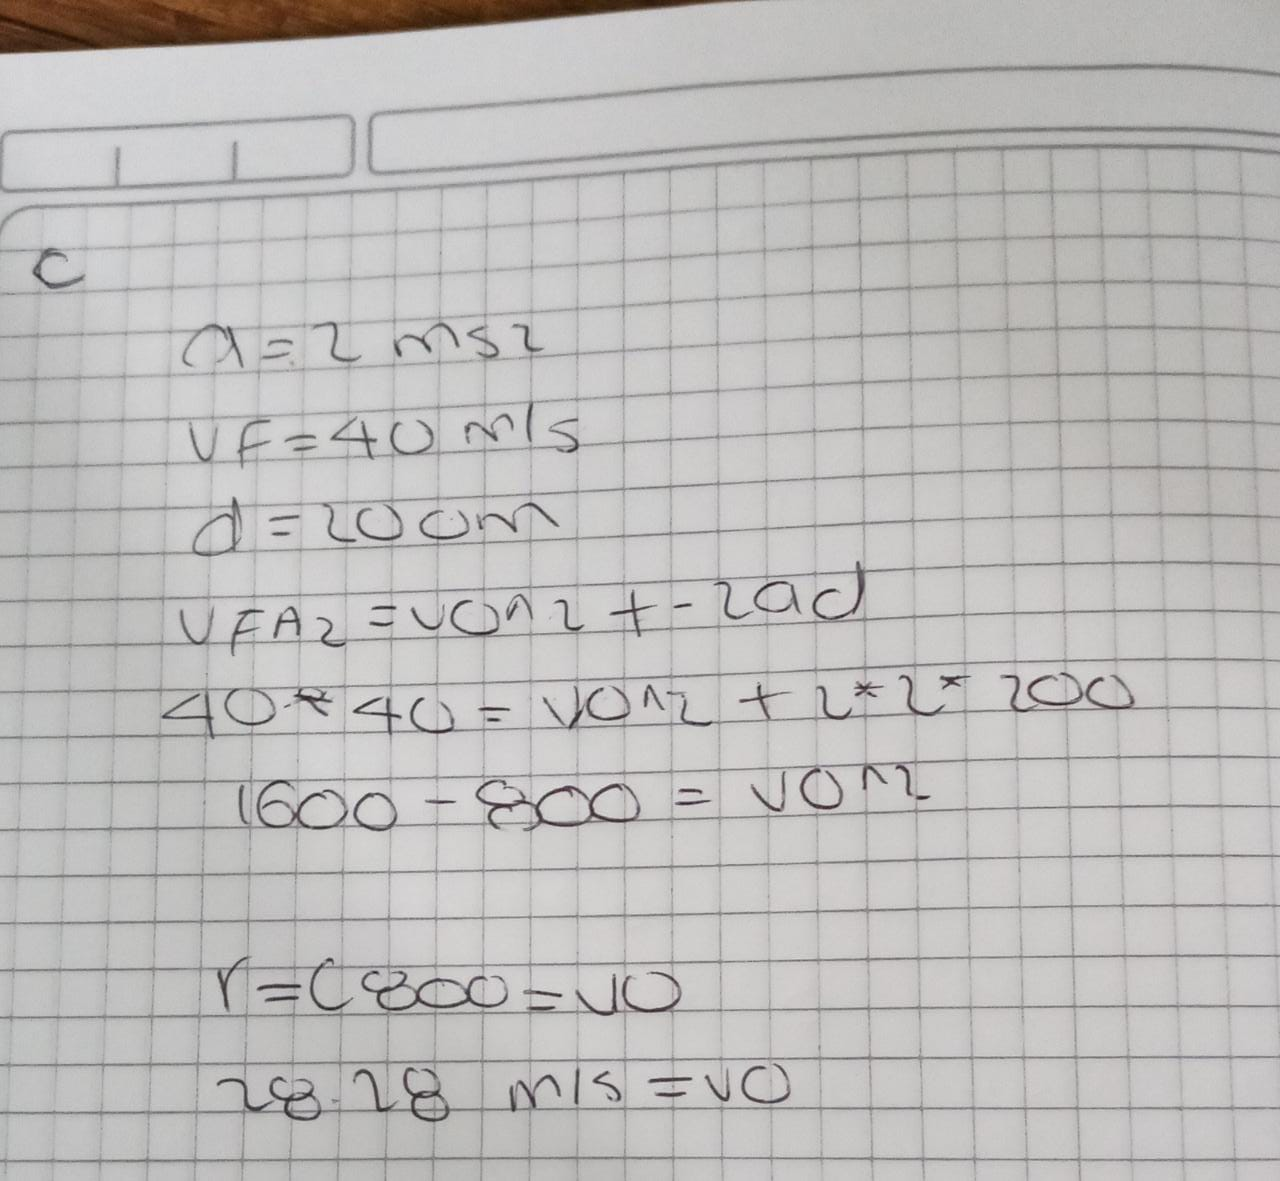 C
a = 2 ms2
VF = 40 m/s
d = 200m
VFA2 = VO^2 + - 2ad
40 * 40 = VO^2 + 2*2* 200
1600 - 800 = VO^2
r=(800 = VO
28.28 m/s = VO